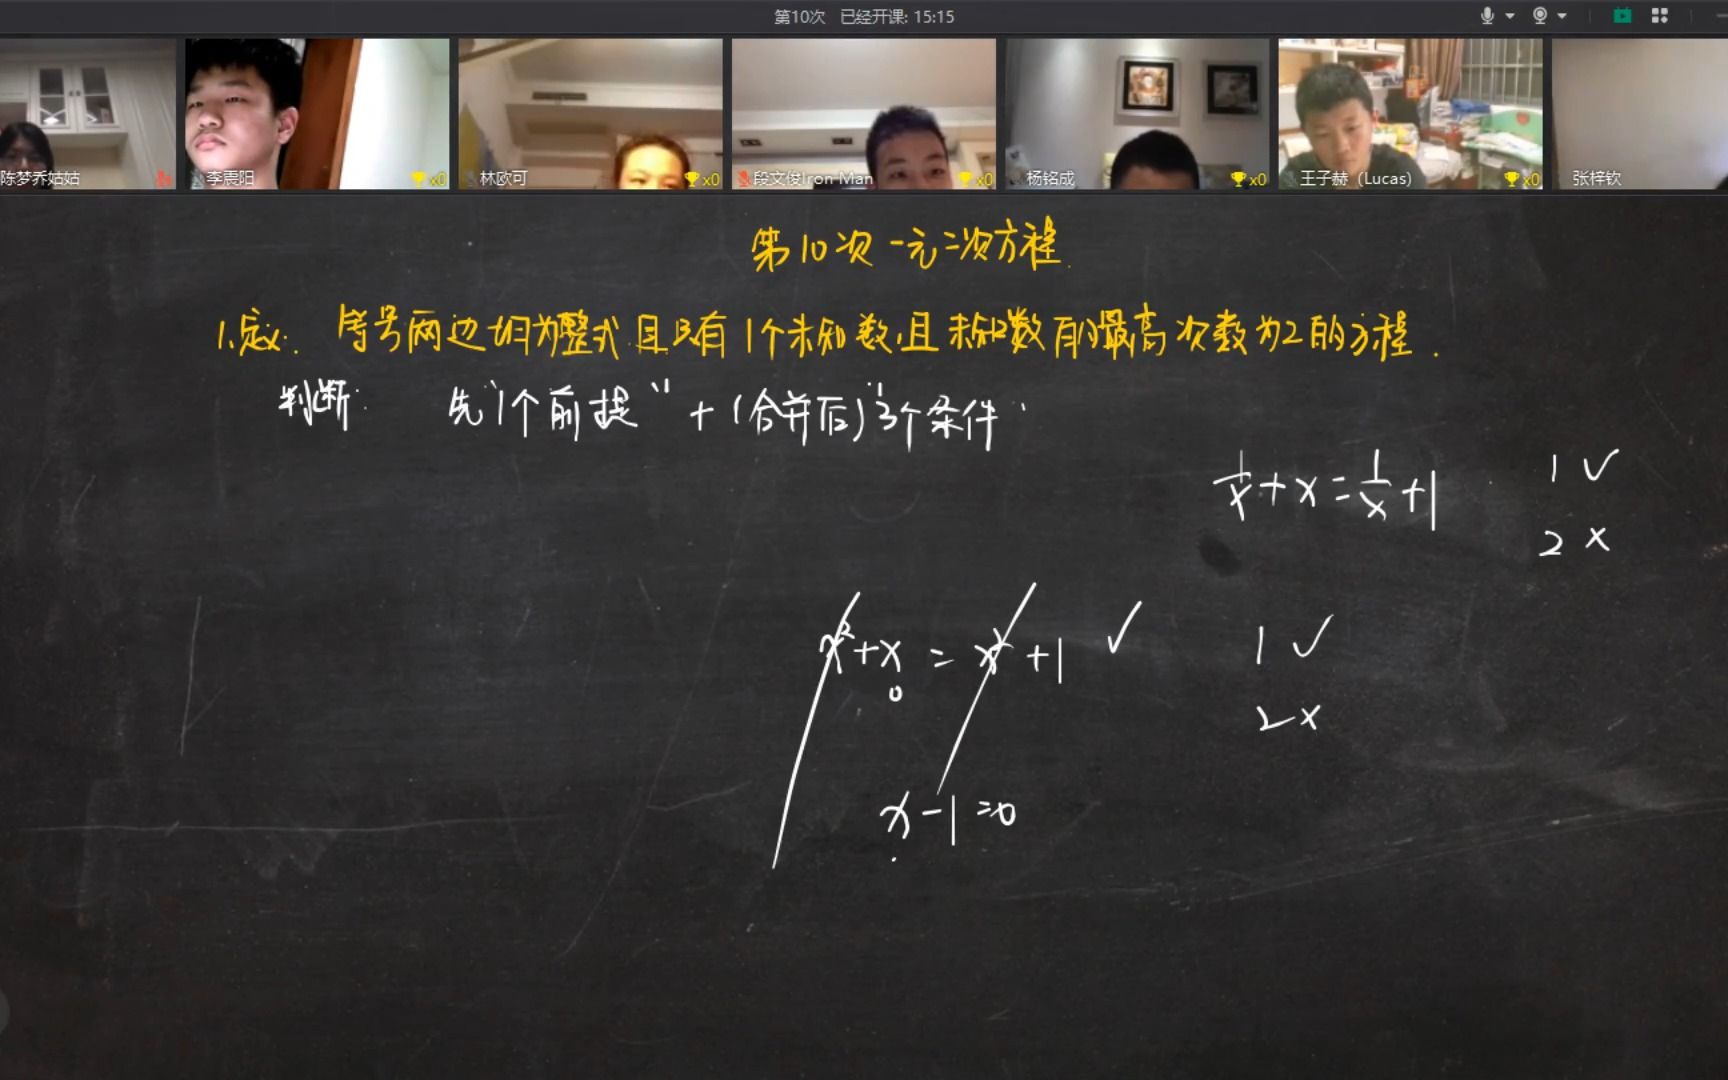 第10次 已经开课: 15:15
陈梦乔姑姑
李震阳 x0
林欧可 x0
段文俊Iron Man x0
杨铭成 x0
王子赫（Lucas) x0
张梓钦
第10次 一元二次方程
1.定义. 等号两边均为整式且只有1个未知数,且未知数的最高次数为2的方程.
判断: 先"1个前提"+(合并后)"3个条件"
1/x+x=1/x+1
1 ✓
2 ×
x²+x=x²+1 ✓
0
1 ✓
2 ×
x-1=0